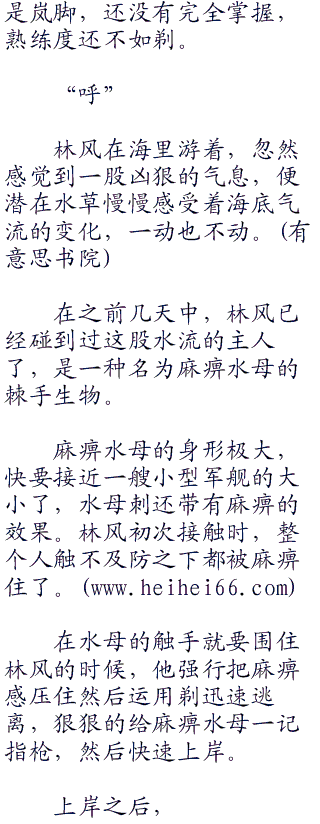 是岚脚，还没有完全掌握，
熟练度还不如剃。
“呼”
林风在海里游着，忽然
感觉到一股凶狠的气息，便
潜在水草慢慢感受着海底气
流的变化，一动也不动。(有
意思书院)
在之前几天中，林风已
经碰到过这股水流的主人
了，是一种名为麻痹水母的
棘手生物。
麻痹水母的身形极大，
快要接近一艘小型军舰的大
小了，水母刺还带有麻痹的
效果。林风初次接触时，整
个人触不及防之下都被麻痹
住了。(www.heihei66.com)
在水母的触手就要围住
林风的时候，他强行把麻痹
感压住然后运用剃迅速逃
离，狠狠的给麻痹水母一记
指枪，然后快速上岸。
上岸之后，